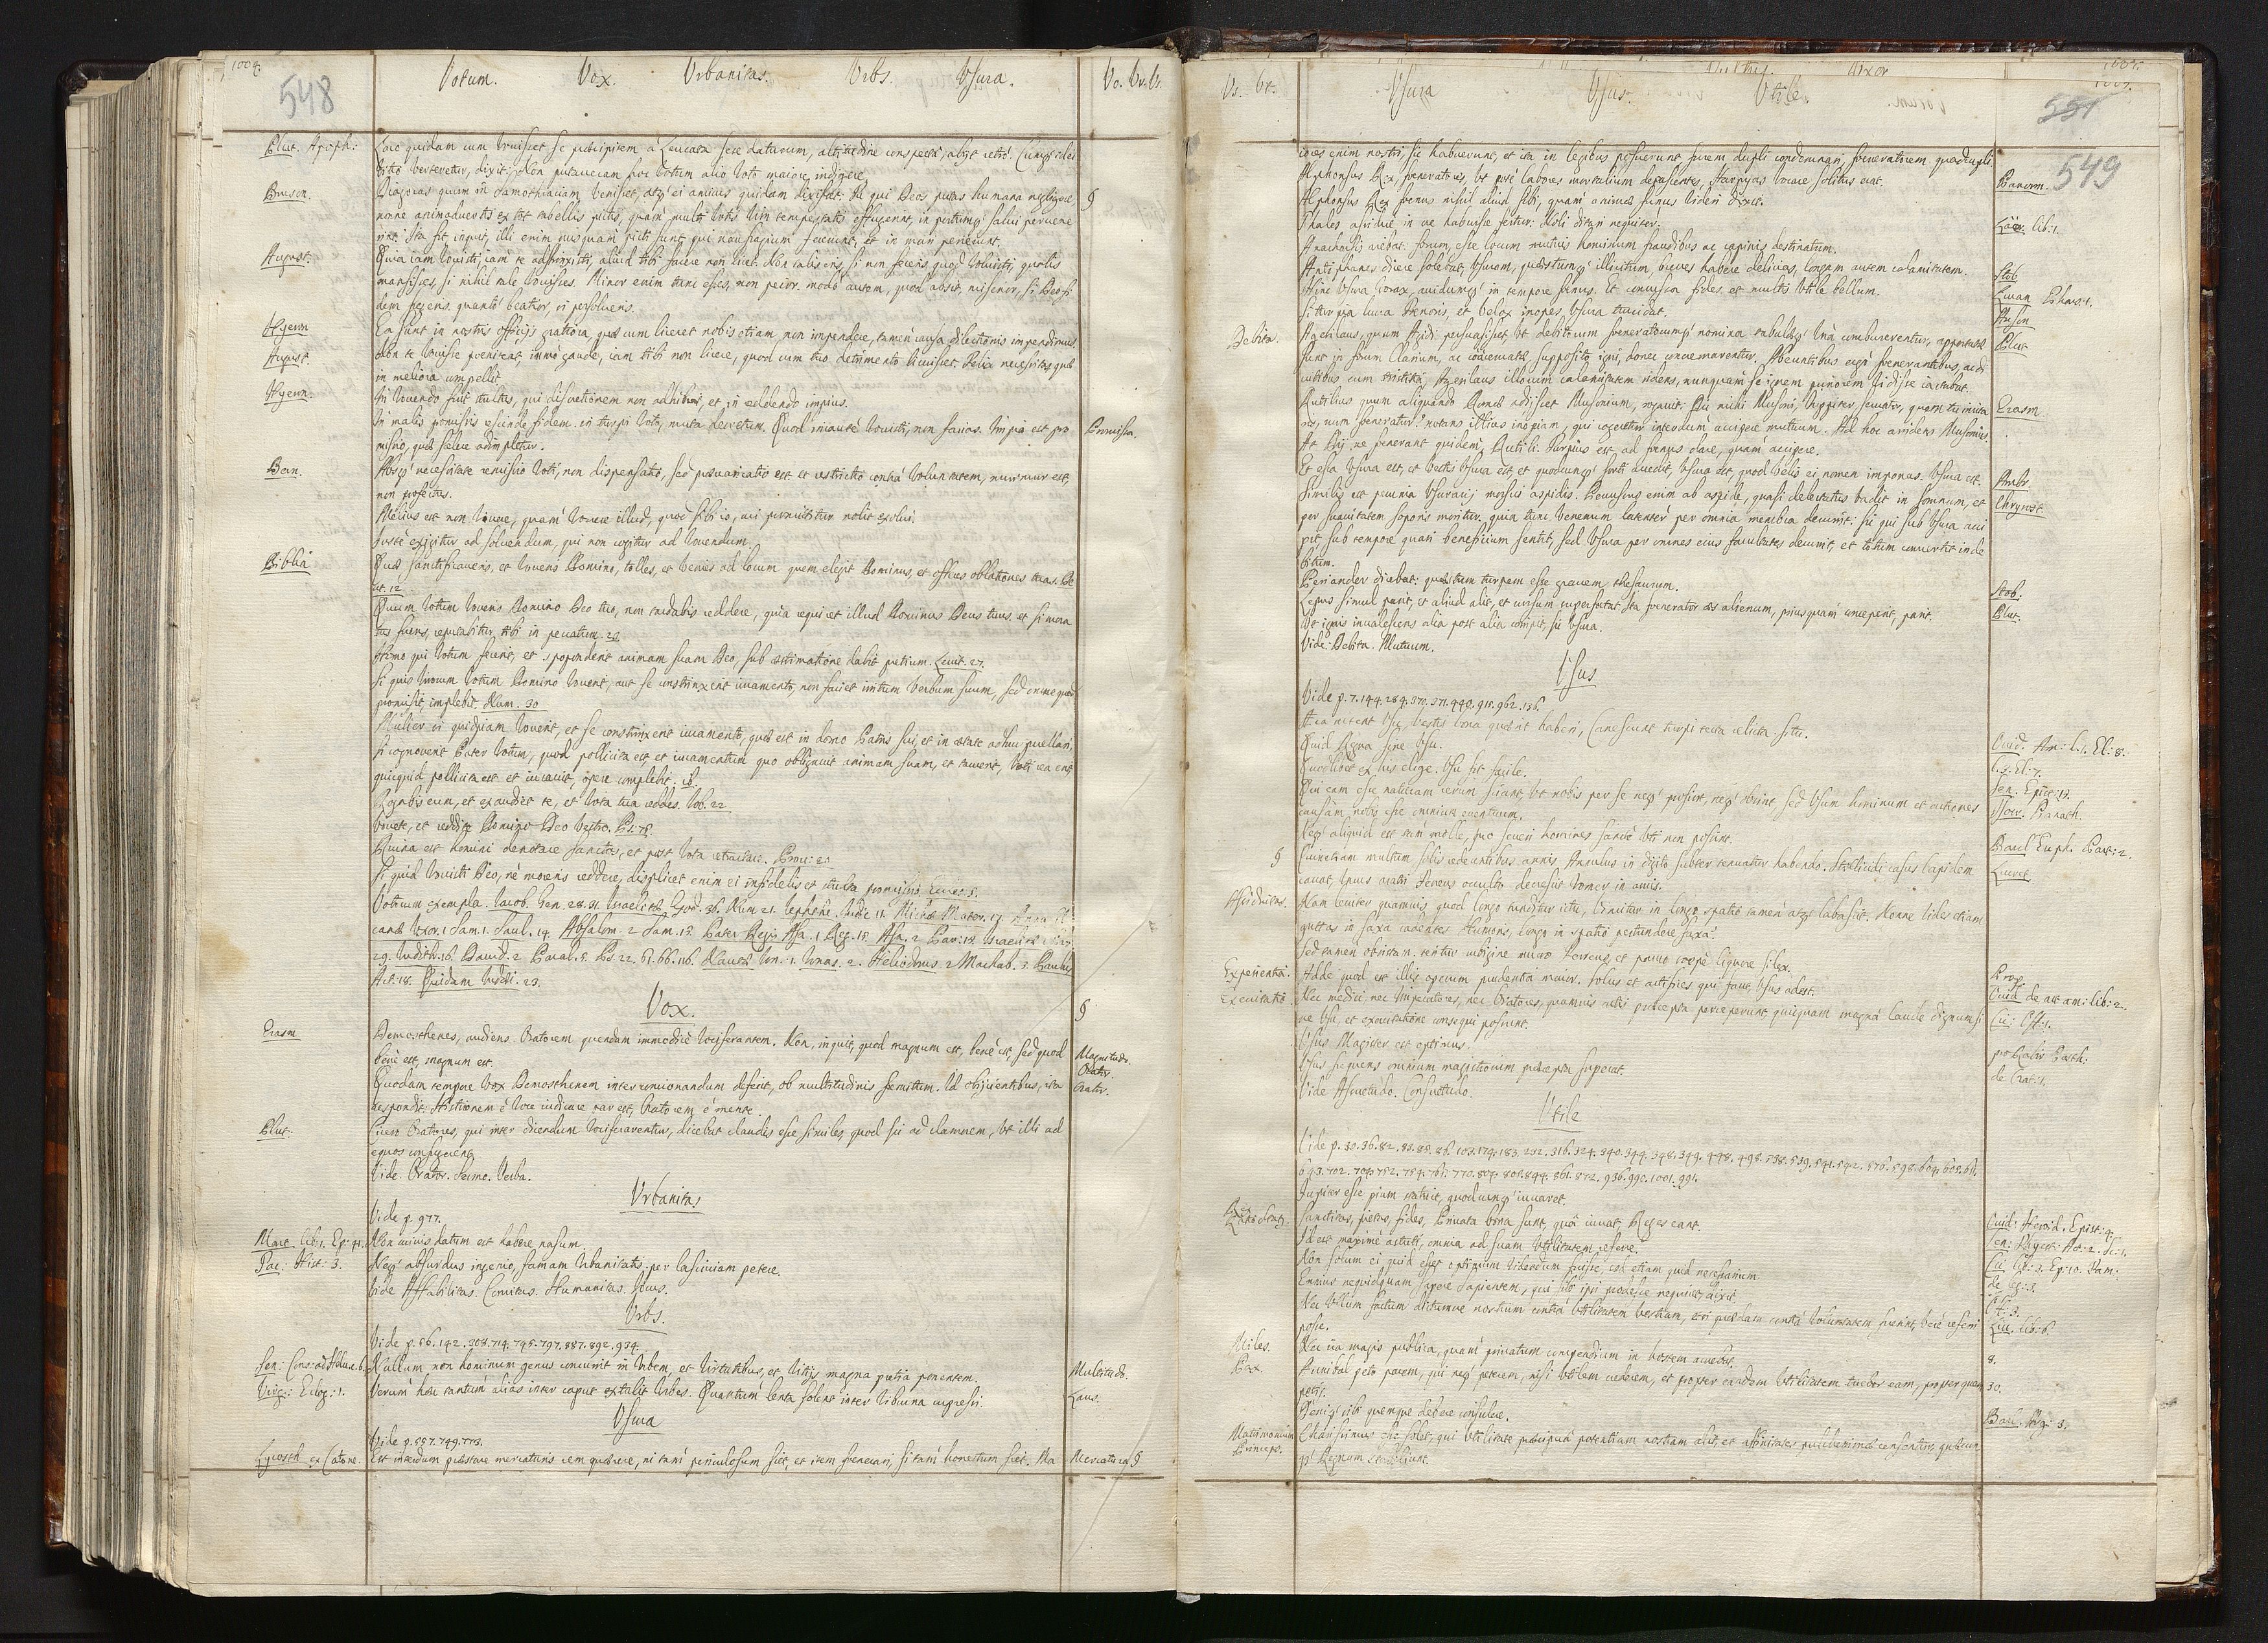 1004
548
Votum. Vox. Vrbanitas. Vrbs. Vsura.
Vo. Vr. Vs.
Plut. Apoph:
Laco quidam cum vouisset se praecipitem à Leucata sese daturum, altitudine conspecta, abijt retrò. Cumq id ei
vitio verteretur, dixit: Non putaueram hoc votum alio voto maiore indigere.
Bruson.
Diagoras quum in Samothraciam venisset, atq ei amicus quidam dixisset: Tu qui Deos putas humana negligere, §
nonne animaduertis ex tot tabellis pictis, quam multi votis vim tempestatis effugerint, in portumq salui peruene
rint. Ita fit, inquit, illi enim nusquam picti sunt, qui naufragium fecerunt, et in mari perierunt.
August.
Quia iam vouisti, iam te adstrinxisti, aliud tibi facere non licet. Non talis eris, si non feceris quod vouisti, qualis
mansisses, si nihil tale vouisses. Minor enim tunc esses, non peior. modò autem, quod absit, miserior, si Deo fi
dem fregeris. quantò beatior, si persolueris.
Hyeron
Ea sunt in nostris officijs gratiora, quae cum liceret nobis etiam non impendere, tamen causa dilectionis impendimus.
August.
Non te vouisse poeniteat, immò gaude, iam tibi non licere, quod cum tuo detrimento licuisset. Felix necessitas, quae
in meliora compellit.
Hyeron.
In vouendo fuit stultus, qui discretionem non adhibuit, et in reddendo impius.
In malis promissis rescinde fidem. in turpi voto, muta decretum. Quod incautè vouisti, non facias. Impia est pro Promissa.
missio, quae scelere adimpletur.
Bern.
Absq necessitate remissio voti, non dispensatio, sed praeuaricatio est. et restrictio contrà voluntatem, murmur est,
non profectus.
Melius est non vouere, quàm vouere illud, quod sibi is, cui promittitur nolit exolui.
Iustè exigitur ad soluendum, qui non cogitur ad vouendum.
Biblia
Quae sanctificaueris, et voueris Domino, tolles, et venies ad locum quem elegit Dominus, et offeres oblationes tuas. De
ut. 12
Quum votum voueris Domino Deo tuo, non tardabis reddere, quia requiret illud Dominus Deus tuus. et si mora
tus fueris, reputabitur tibi in peccatum. 23
Homo qui votum fecerit, et spoponderit animam suam Deo, sub aestimatione dabit pretium. Leuit. 27.
Si quis virorum votum Domino vouerit, aut se constrinxerit iuramento, non faciet irritum verbum suum, sed omne quod
promisit, implebit. Num. 30
Mulier si quidpiam vouerit, et se constrinxerit iuramento, quae est in domo Patris sui, et in aetate adhuc puellari,
si cognouerit Pater votum, quod pollicita est et iuramentum quo obligauit animam suam, et tacuerit, voti rea erit
quicquid pollicita est et iurauit, opere complebit. ib.
Rogabis eum, et exaudiet te, et vota tua reddes. Iob. 22
Vouete, et reddite Domino Deo vestro. Ps. 75.
Ruina est homini deuorare sanctos, et post vota retractare. Prou: 20
Si quid vouisti Deo, nè moreris reddere, displicet enim ei infidelis et stulta promissio. Eccles. 5.
Votorum exempla. Iacob. Gen. 28. 31. Israelitae Exod. 36. Num 21. Iephthe. Iudic 11. Michae Mater. 17. Anna El
canae Vxor. 1 Sam. 1. Saul. 14. Absalom. 2 Sam. 15. Pater Regis Asa. 1 Reg. 15. Asa. 2 Par. 15. Israelitae
29. Iudith. 16. Dauid. 2 Paral. 5. Ps. 22. 61. 66. 116. Nautae Ion. 1. Ionas. 2. Heliodorus 2 Machab. 3. Paulus
Act. 18. Quidam Iudaei. 23.
Vox. §
Erasm
Demosthenes, audiens Oratorem quendam immodicè vociferantem. Non, inquit, quod magnum est, benè est, sed quod Magnitudo.
benè est, magnum est. Orator.
Quodam tempore vox Demosthenem inter concionandum defecit, ob multitudinis fremitum. Id obijcientibus, ita Orator.
respondit. Histrionem è voce iudicare par est, Oratorem è mente.
Plut.
Cicero Oratores, qui inter dicendum vociferarentur, dicebat claudis esse similes, quod sic ad clamorem, vt illi ad
equos confugerent.
Vide Orator. Sermo. Verba.
Vrbanitas
Vide p. 977.
Mart. lib: 1. Ep: 41.
Non cuiuis datum est habere nasum.
Tac: Hist: 3.
Neq absurdus ingenio, famam vrbanitatis per lasciuiam petere.
Vide Affabilitas. Comitas. Humanitas. Iocus.
Vrbs.
Vide p. 56. 142. 308. 714. 745. 797. 887. 892. 934.
Sen: Cons: ad Heluia. 6.
Nullum non hominum genus concurrit in Vrbem, et virtutibus, et vitijs magna pretia ponentem. Multitudo.
Virg: Eclog: 1.
Verum haec tantum alias inter caput extulit Vrbes. Quantum lenta solent inter viburna cupressi. Laus.
Vsura
Vide p. 557. 749. 773.
Lycosth. ex Catone.
Est interdum praestare mercaturis rem quaerere, ni tam periculosum siet, et item foenerari, si tam honestum siet. Ma Mercatura §
Vs. Vt.
Vsura Vsus. Vtile.
Vxor
1005.
551
549
iores enim nostri, sic habuerunt, et ita in legibus posuerunt, furem dupli condemnari, foeneratorem quadrupli.
Alphonsus Rex, foeneratores, vt qui labores mortalium depascentes, Harpyias vocare solitus erat. Panorm.
Alphonsus Rex foenus nihil aliud sibi, quam animae funus videri dixit.
Thales assiduè in ore habuisse fertur: Noli ditari nequiter. Laer. lib: 1.
Anacharsis aiebat: forum, esse locum mutuis hominum fraudibus ac rapinis destinatum.
Antiphanes dicere solebat, vsuram, quaestumq illicitum, breues habere delicias, longam autem calamitatem. Stob
Hinc vsura vorax, auidumq in tempore foenus. Et concussa fides, et multis vtile bellum. Lucan Phars: 1.
Si turpia lucra Foenoris, et velox inopes vsura trucidat. Auson
Debita
Agesilaus, quum Agidi persuasisset, vt debitorum foeneratorumq nomina tabulaeq vnà comburerentur, apportatae Plut
sunt in forum Clarium, ac coaceruatae, supposito igni, donec concremarentur. Abeuntibus ergò foenerantibus, ac di
uitibus cum tristitia, Agesilaus illorum calamitatem ridens, nunquam se ignem puriorem vidisse iactabat.
Rutilius quum aliquando Romae adijsset Musonium, rogauit: Dic mihi Musoni, Iuppiter seruator, quem tu imita Erasm
ris, num foeneratur? notans illius inopiam, qui cogeretur interdum accipere mutuum. Ad hoc arridens Musonius,
At Dij, ne foenerant quidem, Rutili. Turpius est, ad foenus dare, quàm accipere.
Et esca vsura est, et vestis vsura est, et quodcunq sorti accedit, vsura est, quod velis ei nomen imponas. Vsura est. Ambr.
Similis est pecunia vsurarij morsui aspidis. Percussus enim ab aspide, quasi delectatus vadit in somnum, et Chrysost.
per suauitatem soporis moritur. quia tunc venenum latenter per omnia membra decurrit. Sic qui sub vsura acci
pit, sub tempore quasi beneficium sentit, sed vsura per omnes eius facultates decurrit, et totum conuertit in de
bitum.
Periander dicebat: quaestum turpem esse grauem thesaurum. Stob.
Lepus simul parit, et aliud alit, et rursum superfoetat. Ita foenerator aes alienum, priusquàm conceperit, parit. Plut.
Vt ignis inualescens alia post alia corripit, sic vsura.
Vide Debita. Mutuum.
Vsus
Vide p. 7. 144. 284. 370. 371. 440. 915. 962. 136.
Aera nitent vsu, vestis bona quaerit haberi, Canescunt turpi tecta relicta situ. Ouid. Am: l. 1. El: 8.
Quid Regna sine vsu. l. 3. El: 7.
Quodlibet ex his elige. Vsu fit facile. Sen. Epist. 17.
Qui eam esse naturam rerum sciant, vt nobis per se neq prosint, neq obsint, sed vsum hominum et actiones Isocr. Panath.
causam nobis esse omnium euentuum.
Neq aliquid est tam molle, quo seueri homines sanctè vti non possint. Barcl Euph. Part: 2.
§
Quinetiam multum solis redeuntibus annis, Annulus in digito subter tenuatur habendo. Stillicidi casus lapidem Lucret
cauat, vncus aratri ferreus occultò decrescit vomer in aruis.
Assiduitas.
Nam leuiter quamuis quod longo tunditur ictu, vincitur in longo spatio tamen atq labascit. Nonne vides etiam
guttas in saxa cadentes Humoris, longo in spatio pertundere saxa?
Sed tamen obiectu. teritur rubigine mucro Ferreus, et paruo saepè liquore silex. Prop
Experientia.
Adde quod est illis operum prudentia maior. Solus et artifices qui facit, vsus adest. Ouid de art am: lib: 2.
Exercitatio
Nec medici nec Imperatores, nec Oratores, quamuis artis praecepta perceperunt, quicquam magna laude dignum si Cic: Off: 1.
ne vsu, et exercitatione consequi possunt.
Vsus Magister est optimus. pro Rabir Posth.
Vsus frequens omnium magistrorum praecepta superat. de Orat: 1.
Vide Assuetudo. Consuetudo.
Vtile
Vide p. 30. 36. 82. 83. 85. 86. 103. 179. 183. 232. 316. 324. 340. 344. 348. 349. 448. 498. 538. 539. 541. 542. 576. 598. 604. 605. 611.
693. 702. 704. 752. 754. 761. 770. 804. 805. 844. 861. 872. 936. 990. 1001. 991.
Iupiter esse pium statuit, quodcunq iuuaret. Ouid. Heroid. Epist: 4.
Sanctitas, pietas, fides, Priuata bona sunt, quà iuuat, Reges eant. Sen: Thyest: Act: 2. Sc: 1.
Id est maximè astuti, omnia ad suam vtilitatem referre. Cic lib: 3. Ep: 10. Fam:
Non solum ei quid esset optimum videndum fuisse, sed etiam quid necessarium. de leg: 3.
Ennius nequidquam sapere Sapientem, qui sibi ipsi prodesse nequiret, dixit. Off: 3.
Nec vllum factum dictumue nostrum contrà vtilitatem vestram, etsi quaedam contrà voluntatem fuerint, verè referri Liu. lib: 6.
posse.
Miles.
Nec iia magis publica, quàm priuatum compendium in hostem acuebat. 8.
Pax.
Annibal peto pacem, qui neq peterem, nisi vtilem crederem, et propter eandem vtilitatem tuebor eam, propter quam 30.
petij.
Deniq sibi quemque debere consulere. Barc. Arg: 3.
Matrimonium
Princeps.
Charissimus esse solet, qui vtilitate praecipuâ potentiam nostram alit, et affinitates pulcherrimae censentur, quibus
q Regnum stabiliunt.